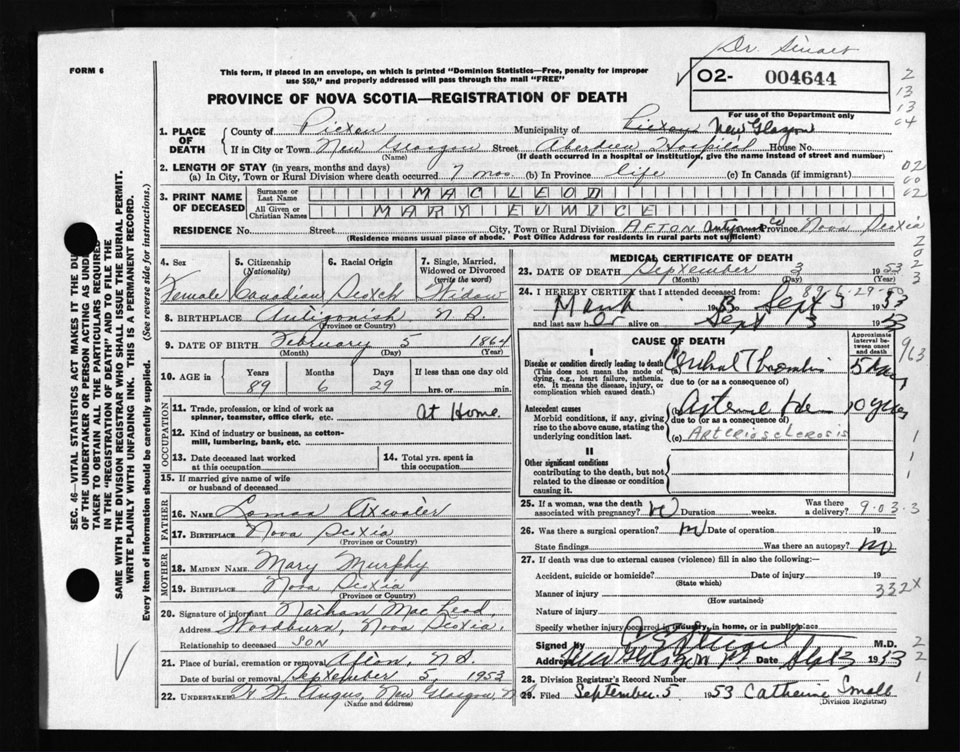 Dr. Stewart
FORM 6
This form, if placed in an envelope, on which is printed "Dominion Statistics—Free, penalty for improper
use $50," and properly addressed will pass through the mail "FREE"
O2- 004644
2
13
13
04
PROVINCE OF NOVA SCOTIA—REGISTRATION OF DEATH
For use of the Department only
1. PLACE OF DEATH
County of Pictou Municipality of Pictou New Glasgow
If in City or Town New Glasgow Street Aberdeen Hospital House No.
(Name) (If death occurred in a hospital or institution, give the name instead of street and number)
2. LENGTH OF STAY (in years, months and days)
(a) In City, Town or Rural Division where death occurred 7 mos. (b) In Province life (c) In Canada (if immigrant)
02
60
62
3. PRINT NAME OF DECEASED
Surname or Last Name MACLEOD
All Given or Christian Names MARY EUNICE
RESIDENCE No. Street City, Town or Rural Division AFTON Antig Co Province Nova Scotia
(Residence means usual place of abode. Post Office Address for residents in rural parts not sufficient)
2
0
2
3
4. Sex Female
5. Citizenship (Nationality) Canadian
6. Racial Origin Scotch
7. Single, Married, Widowed or Divorced (write the word) Widow
8. BIRTHPLACE Antigonish N.S.
(Province or Country)
9. DATE OF BIRTH February 5 1864
(Month) (Day) (Year)
10. AGE in Years Months Days If less than one day
89 6 29 hrs. or min.
OCCUPATION
11. Trade, profession, or kind of work as spinner, teamster, office clerk, etc. At Home
12. Kind of industry or business, as cotton-mill, lumbering, bank, etc.
13. Date deceased last worked at this occupation
14. Total yrs. spent in this occupation
15. If married give name of wife or husband of deceased
FATHER
16. NAME Atwater
17. BIRTHPLACE Nova Scotia
(Province or Country)
MOTHER
18. MAIDEN NAME Mary Murphy
19. BIRTHPLACE Nova Scotia
(Province or Country)
20. Signature of informant Nathan MacLeod
Address Woodburn, Nova Scotia.
Relationship to deceased SON
21. Place of burial, cremation or removal Afton, N.S.
Date of burial or removal September 5, 1953
22. UNDERTAKER W. W. Angus, New Glasgow, N
(Name and address)
MEDICAL CERTIFICATE OF DEATH
23. DATE OF DEATH September 3 1953
(Month) (Day) (Year)
24. I HEREBY CERTIFY that I attended deceased from 89-6-29-
March 1953 Sept 3 1953
and last saw her alive on Sept 3 1953
CAUSE OF DEATH
Approximate interval between onset and death
963
I
Disease or condition directly leading to death
(This does not mean the mode of dying, e.g., heart failure, asthenia, etc. It means the disease, injury, or complication which caused death.)
(a) Cerebral Thrombosis 5 days
due to (or as a consequence of)
Antecedent causes
Morbid conditions, if any, giving rise to the above cause, stating the underlying condition last.
(b) 10 years
due to (or as a consequence of)
(c) Arteriosclerosis
1
1
1
II
Other significant conditions
contributing to the death, but not related to the disease or condition causing it.
25. If a woman, was the death associated with pregnancy? No Duration weeks. Was there a delivery? 9-03-3
26. Was there a surgical operation? No Date of operation 19
State findings Was there an autopsy? No
27. If death was due to external causes (violence) fill in also the following:
Accident, suicide or homicide? Date of injury 19
(State which)
332X
Manner of injury
(How sustained)
Nature of injury
Specify whether injury occurred in industry, in home, or in public place
Signed by M.D. 2
Address New Glasgow Date Sept 3 1953 2
28. Division Registrar's Record Number 1
29. Filed September 5 1953 Catherine Small
(Division Registrar)
SEC. 46—VITAL STATISTICS ACT MAKES IT THE DU
OF THE UNDERTAKER OR PERSON ACTING AS UNDER
TAKER TO OBTAIN ALL THE PARTICULARS REQUIRED
IN THE "REGISTRATION OF DEATH" AND TO FILE THE
SAME WITH THE DIVISION REGISTRAR WHO SHALL ISSUE THE BURIAL PERMIT.
WRITE PLAINLY WITH UNFADING INK. THIS IS A PERMANENT RECORD.
Every item of information should be carefully supplied. (See reverse side for instructions.)